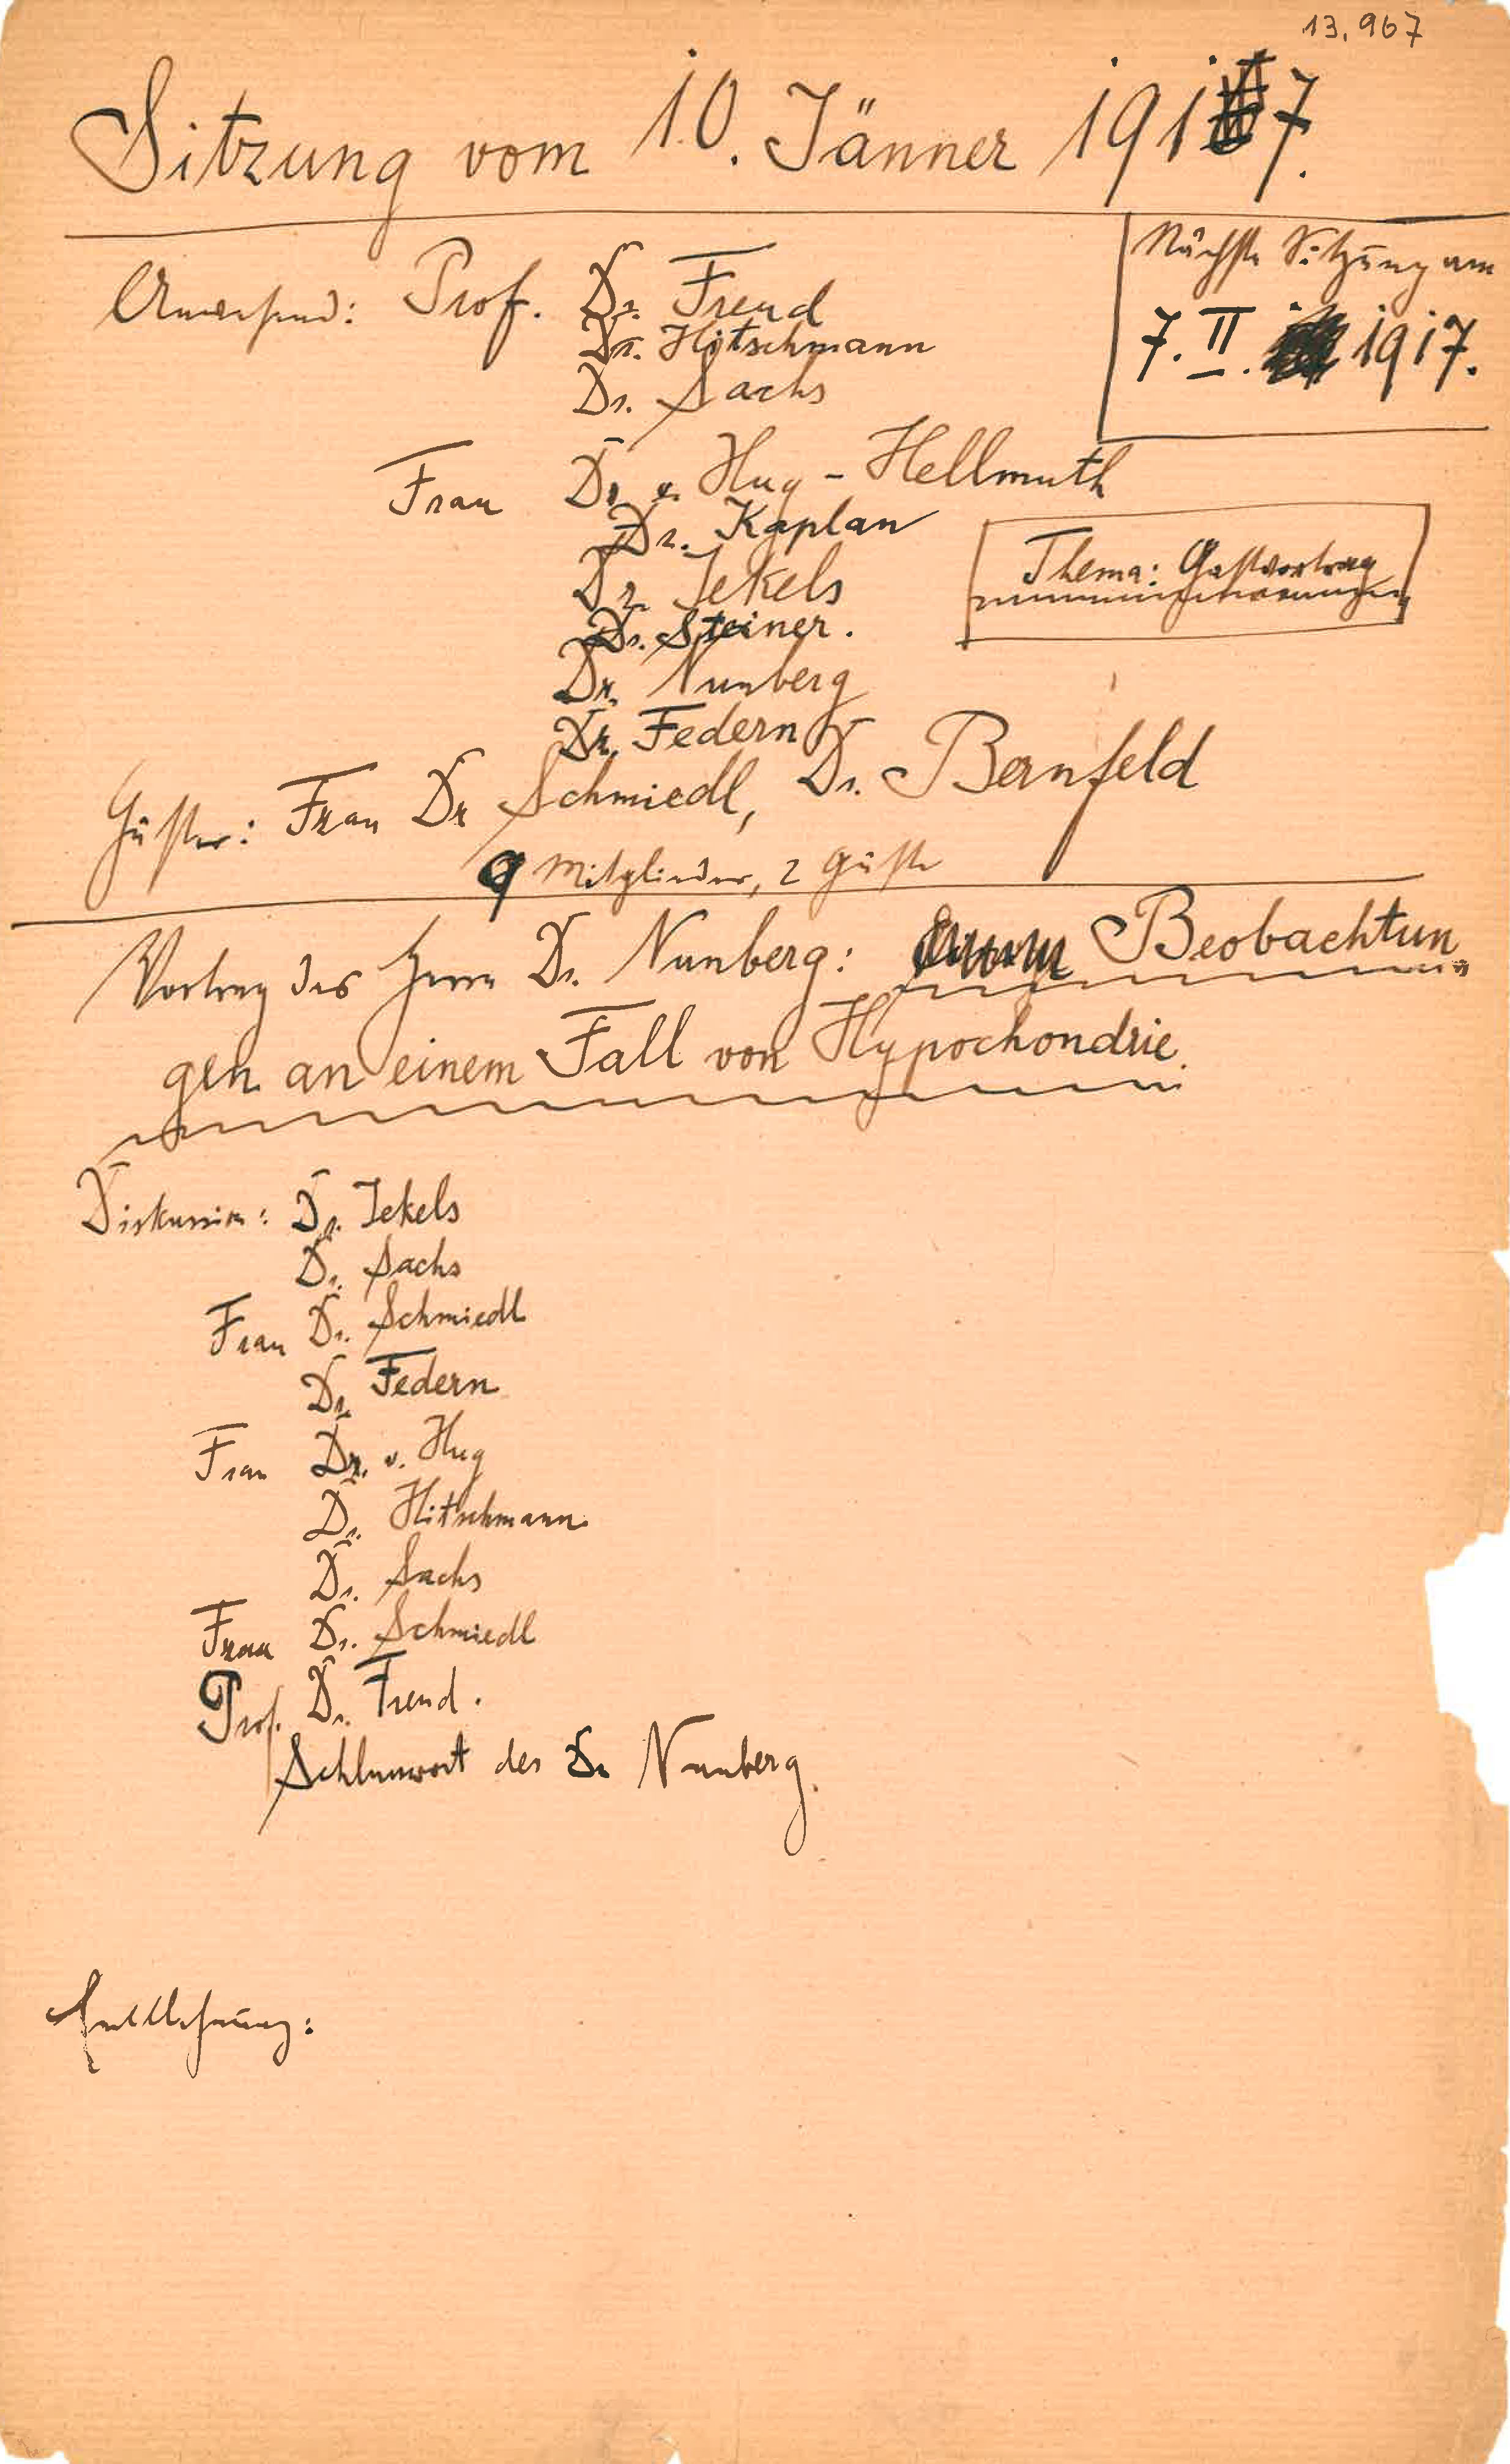 13.967
Sitzung vom 10. Jänner 1917.
Nächste Sitzung am
7. II. 1917.
Anwesend: Prof. Dr. Freud
Dr. Hitschmann
Dr. Sachs
Frau Dr. v. Hug-Hellmuth
Dr. Kaplan
Dr. Jekels
Thema: Gastvortrag
Dr. Steiner.
Dr. Nunberg
Dr. Federn
Gäste: Frau Dr Schmiedl, Dr. Bernfeld
9 Mitglieder, 2 Gäste
Vortrag des Herrn Dr. Nunberg: Beobachtun
gen an einem Fall von Hypochondrie.
Diskussion: Dr. Jekels
Dr. Sachs
Frau Dr. Schmiedl
Dr. Federn
Frau Dr. v. Hug
Dr. Hitschmann
Dr. Sachs
Frau Dr. Schmiedl
Prof. Dr. Freud.
Schlusswort des Dr Nunberg.